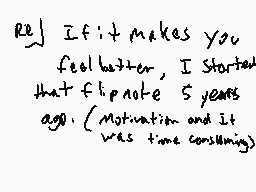 Re] If it makes you
feel better, I started
that flipnote 5 years
ago. (Motivation and It
was time consuming)